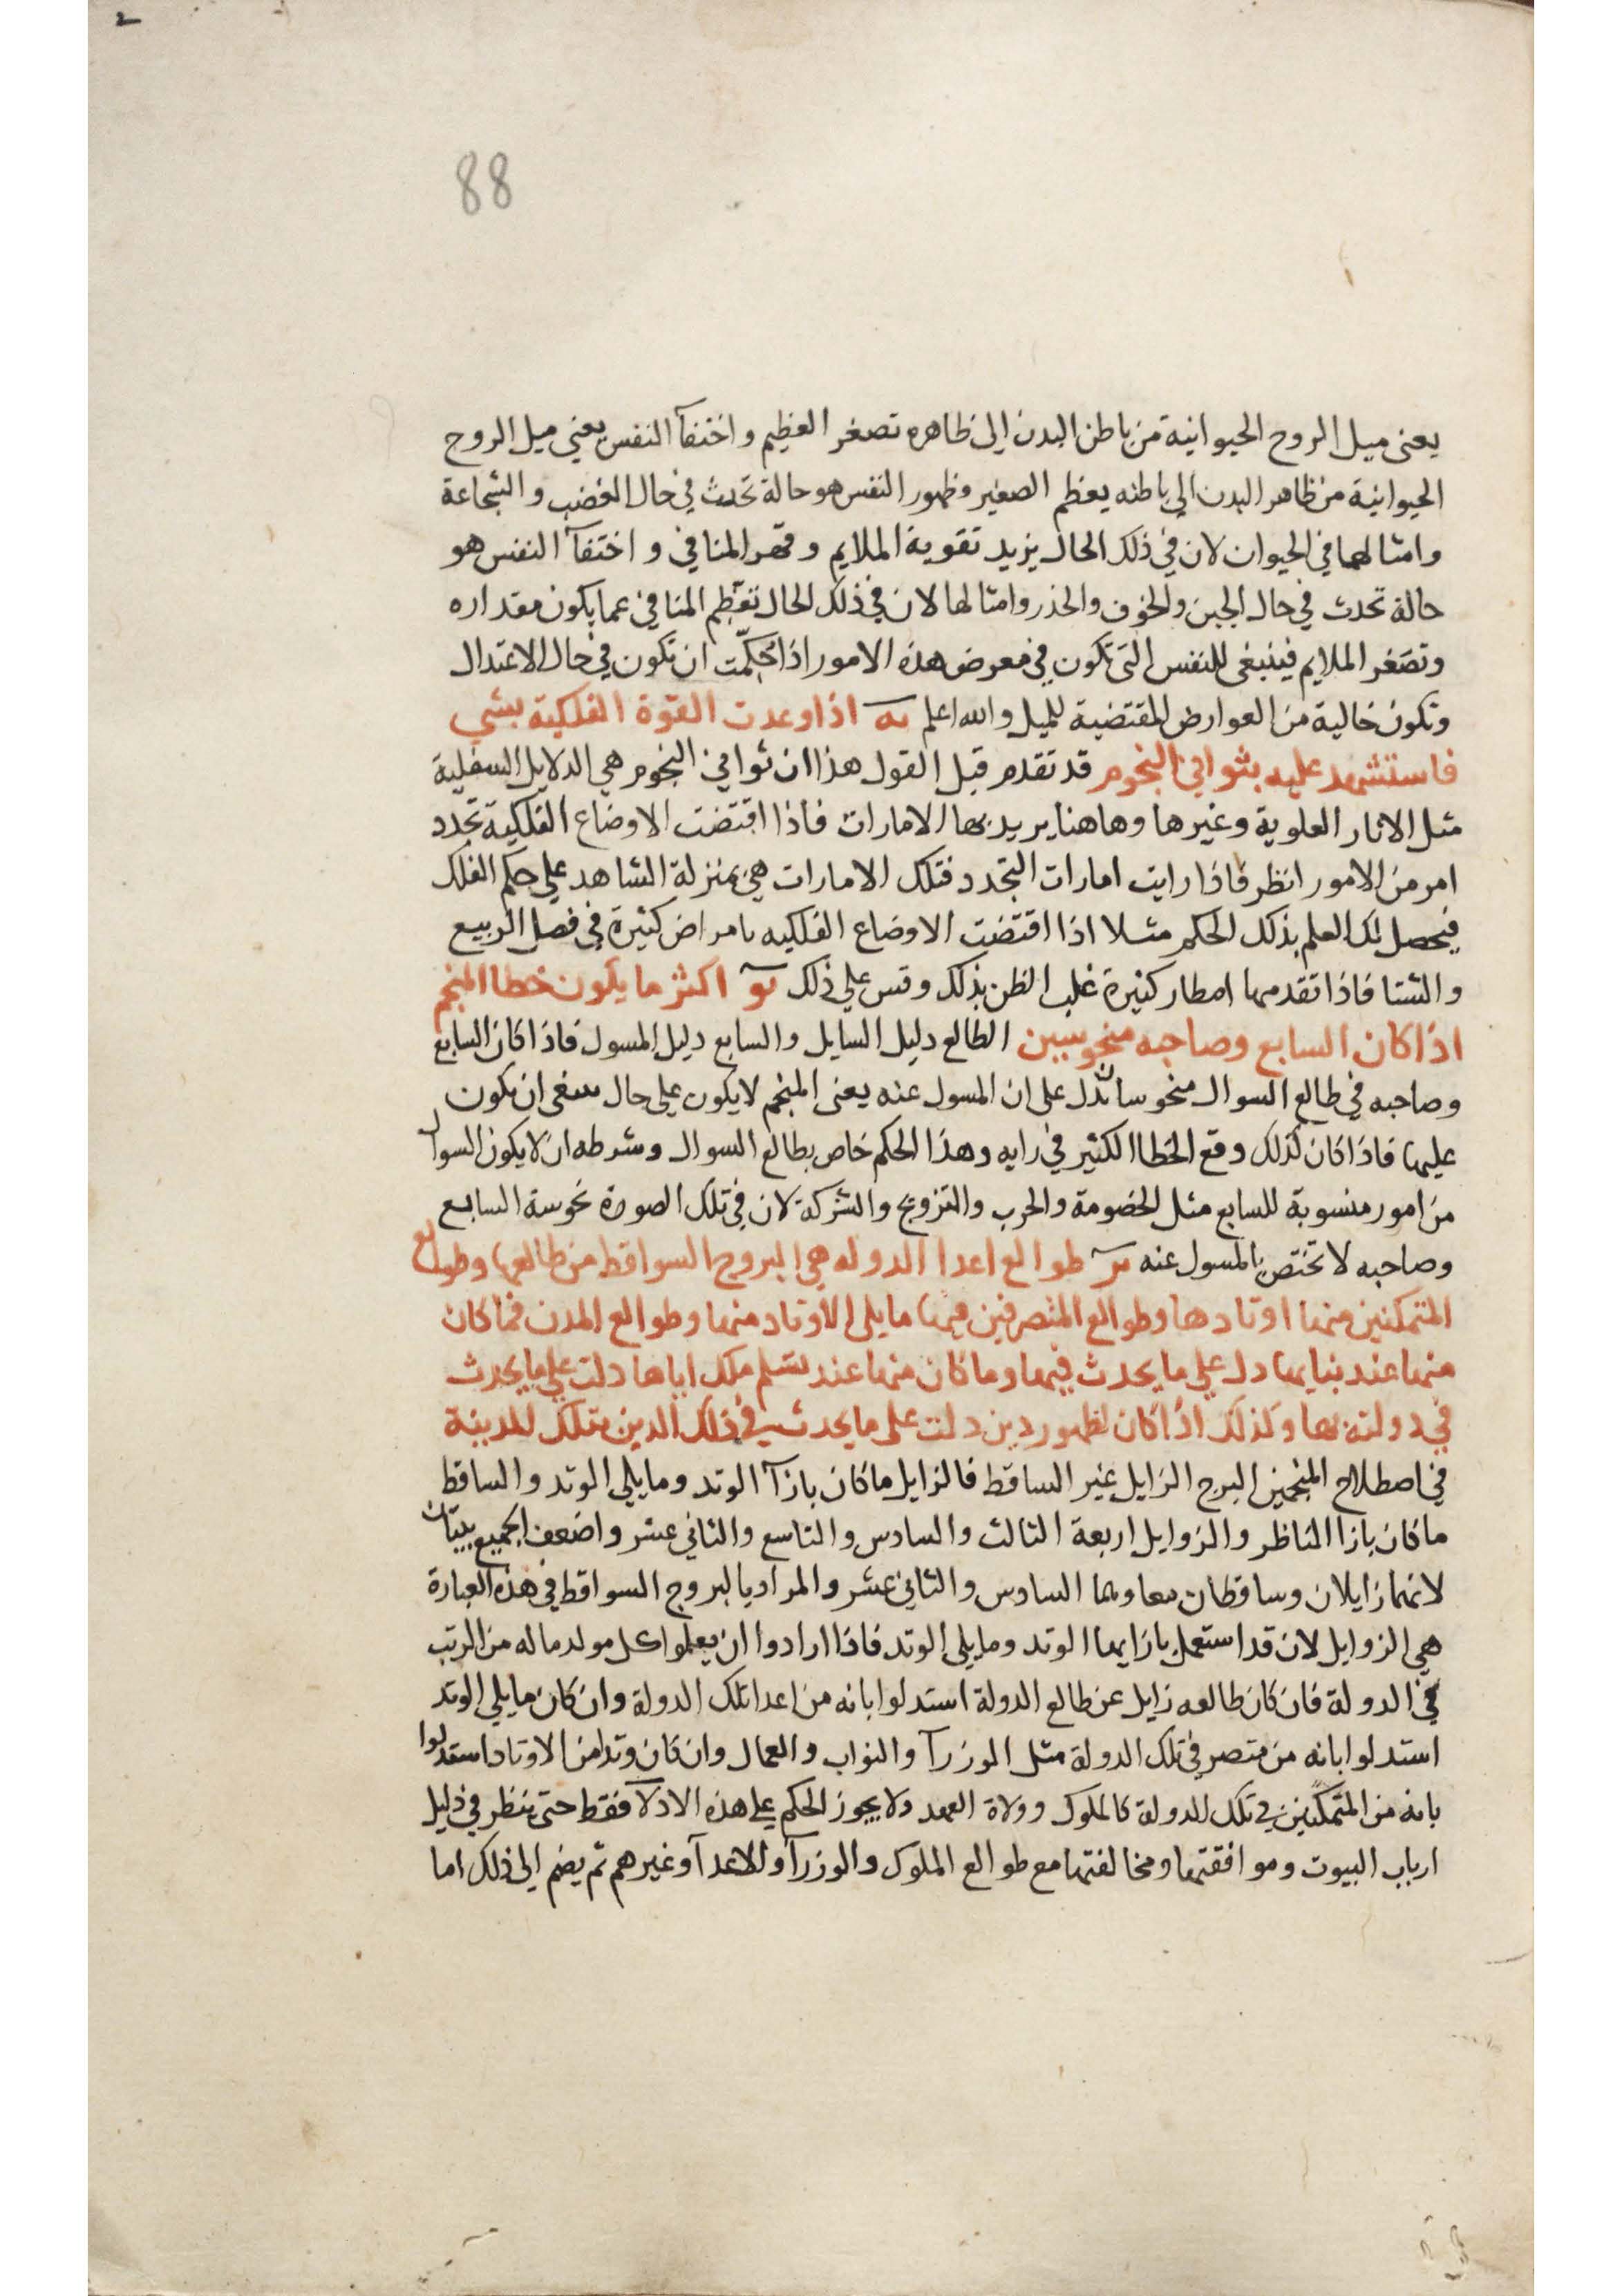 88
يعنى ميل الروح الحيوانية من باطن البدن الى ظاهره تصغر العظيم واختفآ النفس يعني ميل الروح
الحيوانية من ظاهر البدن الى باطنه يعظم الصغير وظهور النفس هو حالة تحدث في حال الغضب والشجاعة
وامثالهما في الحيوان لان في ذلك الحال يزيد تقوية الملايم وقهر المنافي واختفآ النفس هو
حالة تحدث في حال الجبن والخوف والحذر وامثالها لان في ذلك الحال تعظم المنافي عما يكون مقداره
وتصغر الملايم فينبغي للنفس التي تكون في معرض هذه الامور اذا حكمت ان تكون في حال الاعتدال
وتكون خالية من العوارض المقتضية للميل والله اعلم يه اذا وعدت القوة الفلكية بشي
فاستشهد عليه بثواني النجوم قد تقدم قبل القول هذا ان ثواني النجوم هي الدلايل السفلية
مثل الاثار العلوية وغيرها وهاهنا يريد بها الامارات فاذا اقتضت الاوضاع الفلكية تجدد
امر من الامور انظر فاذا رايت امارات التجدد فتلك الامارات هي بمنزلة الشاهد على حكم الفلك
فيحصل لك العلم بذلك الحكم مثلا اذا اقتضت الاوضاع الفلكيه بامراض كثيرة في فصل الربيع
والشتا فاذا تقدمها امطار كثيرة غلب الظن بذلك وقس على ذلك يو اكثر ما يكون خطا المنجم
اذا كان السابع وصاحبه منحوسين الطالع دليل السايل والسابع دليل المسول فاذا كان السابع
وصاحبه في طالع السوال منحوسان دل على ان المسول عنه يعنى المنجم لا يكون على حال ينبغى ان يكون
عليها فاذا كان كذلك وقع الخطا الكثير في رايه وهذا الحكم خاص بطالع السوال وشرطه ان لا يكون السوال
من امور منسوبة للسابع مثل الخصومة والحرب والتزويج والشركة لان في تلك الصورة نحوسة السابع
وصاحبه لا تختص بالمسول عنه يز طوالع اعدا الدوله هي البروج السواقط من طالعها وطوالع
المتمكنين منها اوتادها وطوالع المتصرفين فيها ما يلى الاوتاد منها وطوالع المدن فما كان
منها عند بنايها دل على ما يحدث فيها وما كان منها عند تسلم ملك اياها دلت على ما يحدث
في دولته بها وكذلك اذا كان لظهور دين دلت على ما يحدث في ذلك الدين بتلك المدينة
في اصطلاح المنجمين البرج الزايل غير الساقط فالزايل ما كان بازآ الوتد وما يلي الوتد والساقط
ما كان بازا الناظر والزوايل اربعة الثالث والسادس والتاسع والثاني عشر واضعف الجميع بيتان
لانهما زايلان وساقطان معا وهما السادس والثاني عشر والمراد بالبروج السواقط في هذه العبارة
هي الزوايل لان قد استعمل بازايها الوتد وما يلى الوتد فاذا ارادوا ان يعلموا كل مولد ما له من الرتب
في الدولة فان كان طالعه زايل عن طالع الدولة استدلوا بانه من اعدا تلك الدولة وان كان ما يلي الوتد
استدلوا بانه من متصرفي تلك الدولة مثل الوزرآ والنواب والعمال وان كان وتدا من الاوتاد استدلوا
بانه من المتمكنين في تلك الدولة كالملوك وولاة العهد ولا يجوز الحكم على هذه الادلا فقط حتى ينظر في دليل
ارباب البيوت وموافقتها ومخالفتها مع طوالع الملوك والوزرآ والاعدآ وغيرهم ثم يضم الى ذلك اما